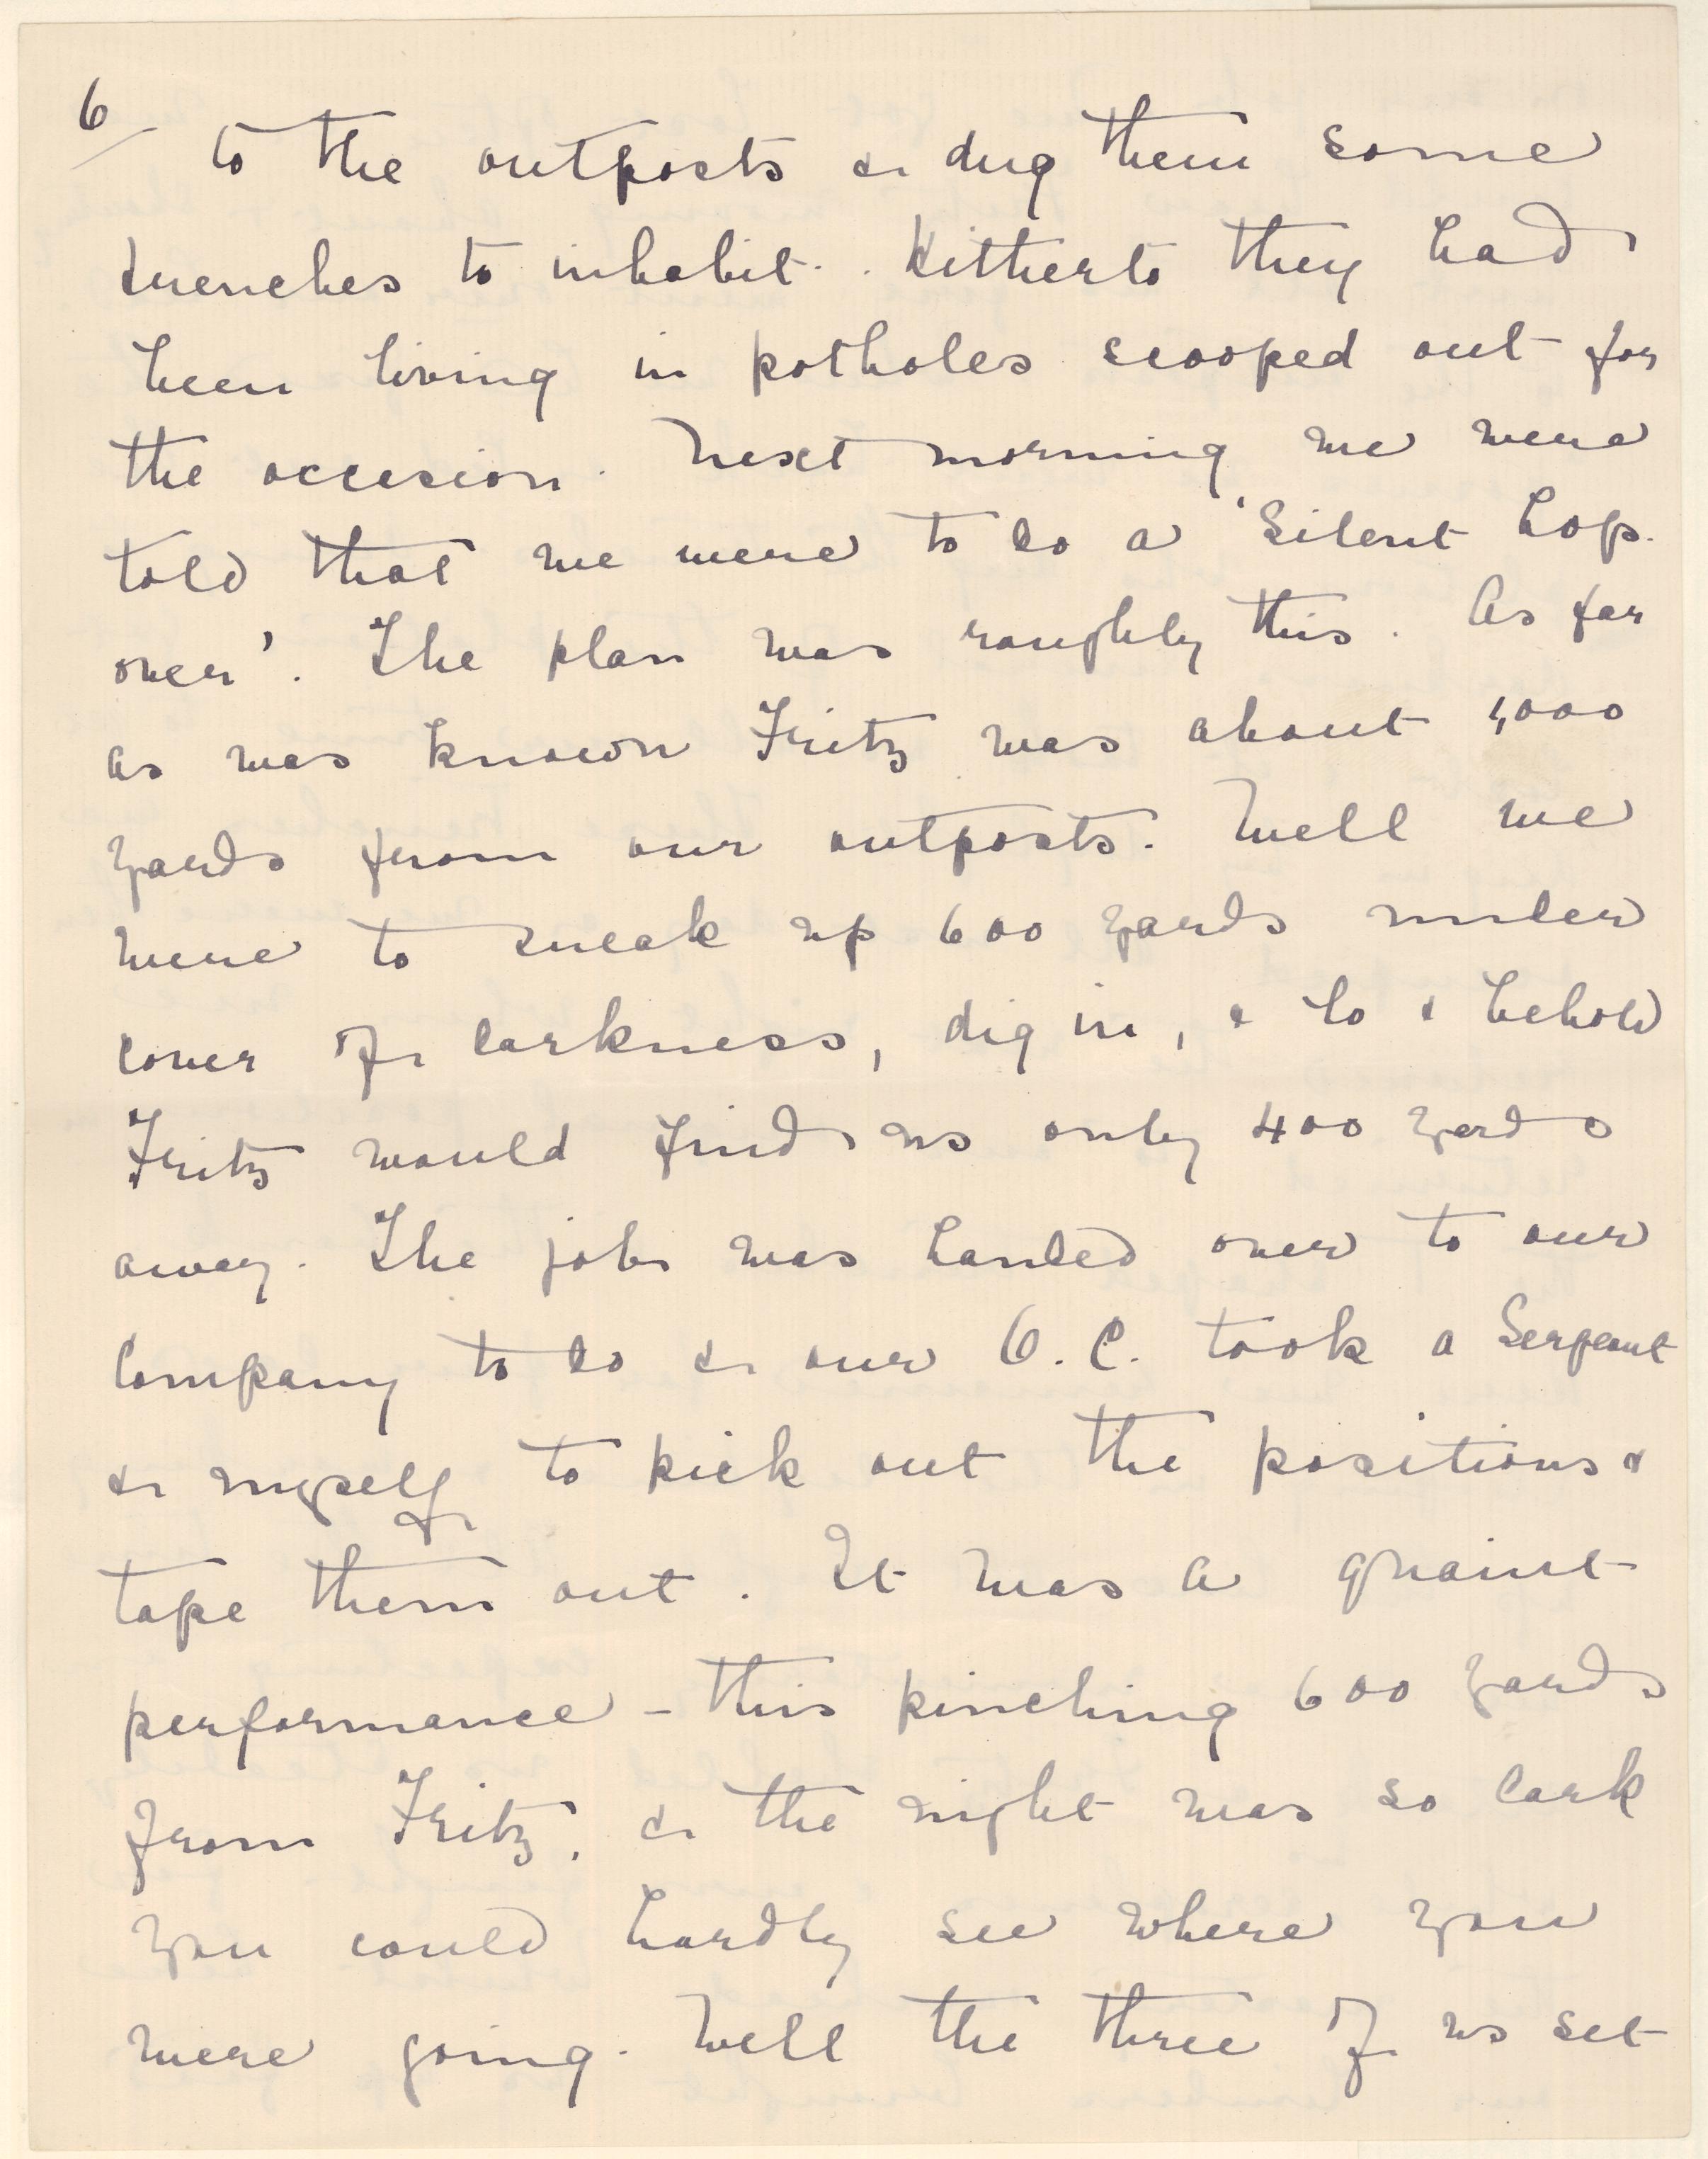 6/
to the outposts & dug them some
trenches to inhabit. Hitherto they had
been living in potholes scooped out for
the occasion. Next morning we were
told that we were to do a 'Silent hop.
over'. The plan was roughly this. As far
as was known Fritz was about 1,000
yards from our outposts. Well we
were to sneak up 600 yards under
cover of darkness, dig in, & lo & behold
Fritz would find us only 400 yards
away. The job was handed over to our
Company to do & our O.C. took a Sergeant
& myself to pick out the positions &
tape them out. It was a quaint
performance - this pinching 600 yards
from Fritz, & the night was so dark
you could hardly see where you
were going. Well the three of us set